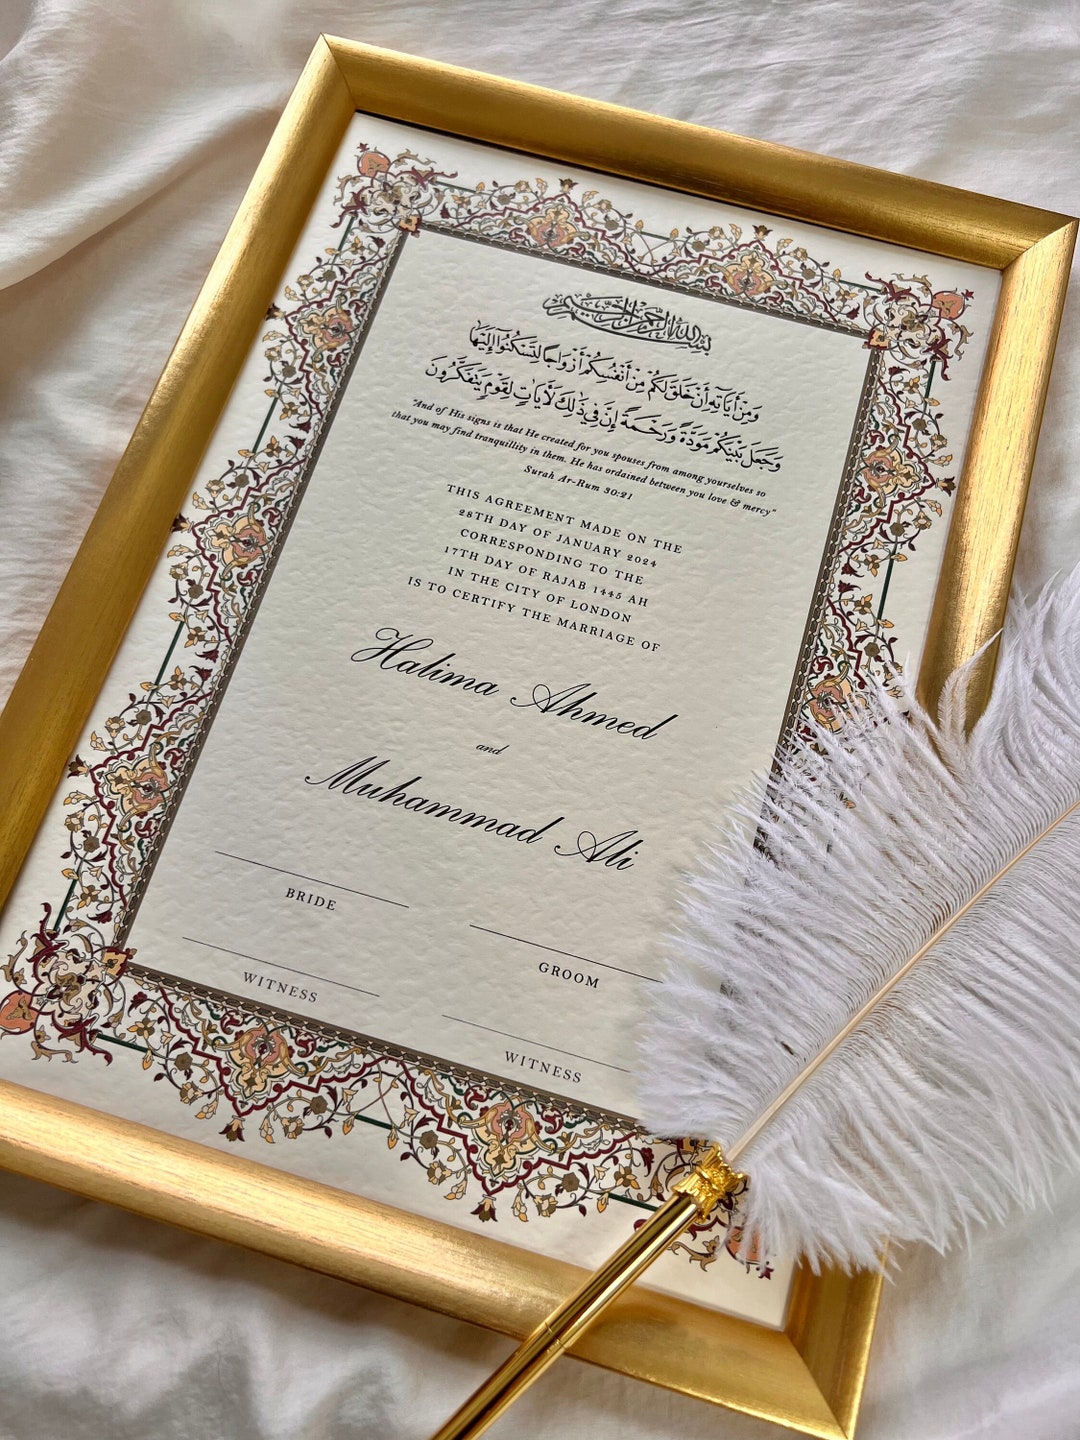 بسم الله الرحمن الرحيم
وَمِنْ آيَاتِهِ أَنْ خَلَقَ لَكُم مِّنْ أَنفُسِكُمْ أَزْوَاجًا لِّتَسْكُنُوا إِلَيْهَا
وَجَعَلَ بَيْنَكُم مَّوَدَّةً وَرَحْمَةً إِنَّ فِي ذَٰلِكَ لَآيَاتٍ لِّقَوْمٍ يَتَفَكَّرُونَ
"And of His signs is that He created for you spouses from among yourselves so
that you may find tranquillity in them. He has ordained between you love & mercy"
Surah Ar-Rum 30:21
THIS AGREEMENT MADE ON THE
28TH DAY OF JANUARY 2024
CORRESPONDING TO THE
17TH DAY OF RAJAB 1445 AH
IN THE CITY OF LONDON
IS TO CERTIFY THE MARRIAGE OF
Halima Ahmed
and
Muhammad Ali
BRIDE
GROOM
WITNESS
WITNESS